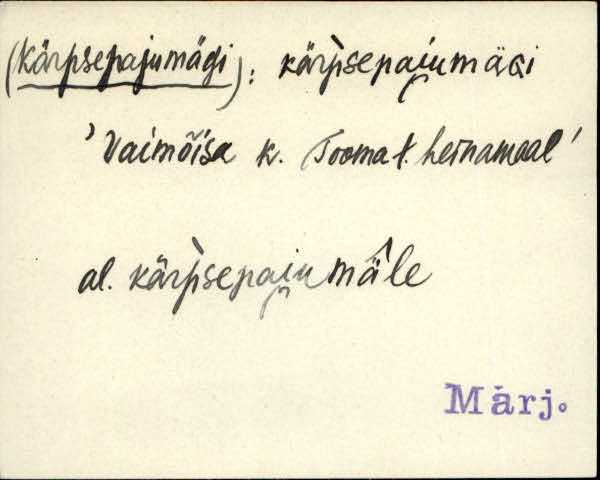 (Kärpsepajumägi): kärp̀sepai̯umäGi
'Vaimõisa k. Tooma t. heinamaal'
al. kärp̀sepai̯umä̂le
Märj.